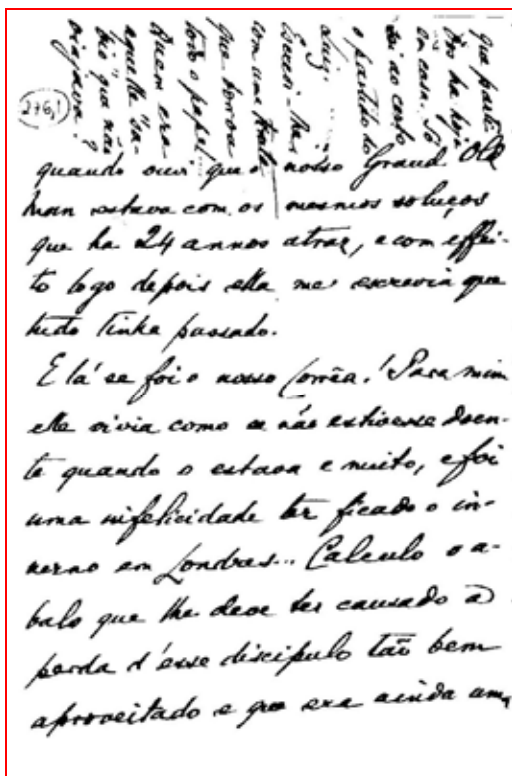 que parti-
do ha hoje
em casa. Só
sei ao certo
o partido do
Luiz.
com uma
todo o papel
Quem era
aquelle "sa-
bio" que não
viajava?
276,1
quando ouvi que o nosso Grand Old
Man estava com os mesmos soluços
que ha 24 annos atraz, e com effei-
to logo depois ella me escrevia que
tudo tinha passado.
E lá se foi o nosso Corrêa! Para mim
elle vivia como se não estivesse doen-
te quando o estava e muito, e foi
uma infelicidade ter ficado o in-
verno em Londres... Calculo o a-
balo que lhe deve ter causado a
perda d'esse discipulo tão bem
aproveitado e que era ainda um